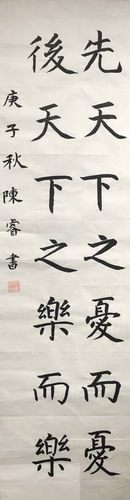 先天下之憂而憂
後天下之樂而樂
庚子秋陳睿書